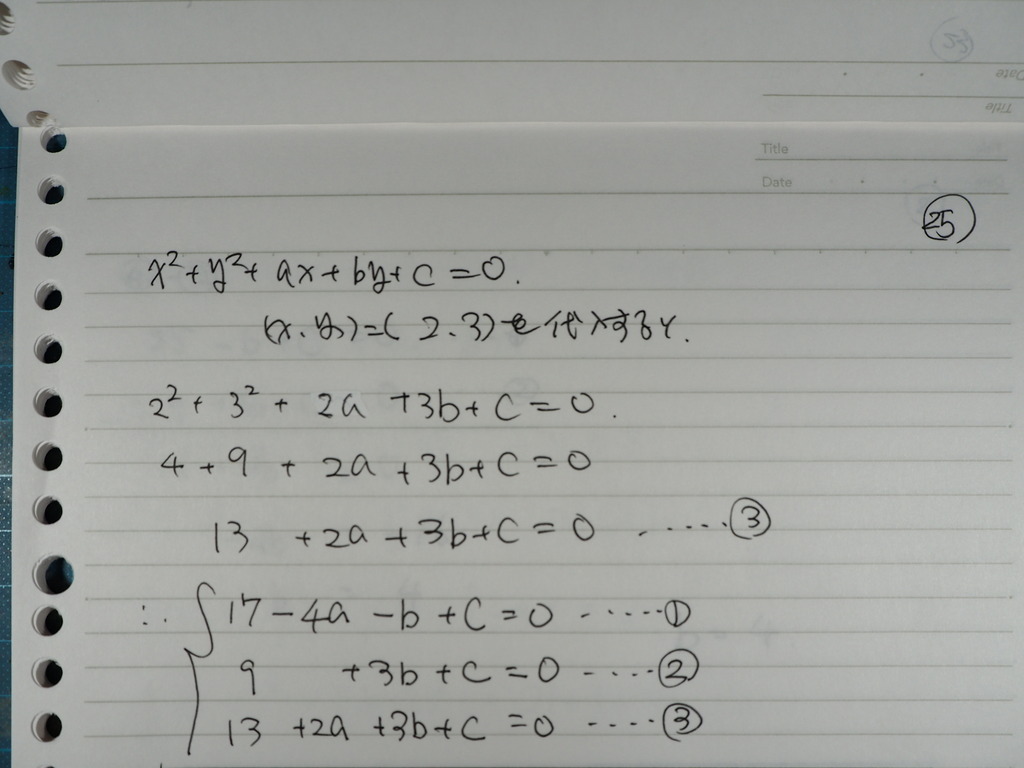 Title
Date
㉕
x²+y²+ax+by+c=0.
(x.y)=(2.3)を代入すると.
2²+3²+2a+3b+c=0.
4+9+2a+3b+c=0
13+2a+3b+c=0 ……③
∴ { 17-4a-b+c=0 ……①
9+3b+c=0 ……②
13+2a+3b+c=0 ……③